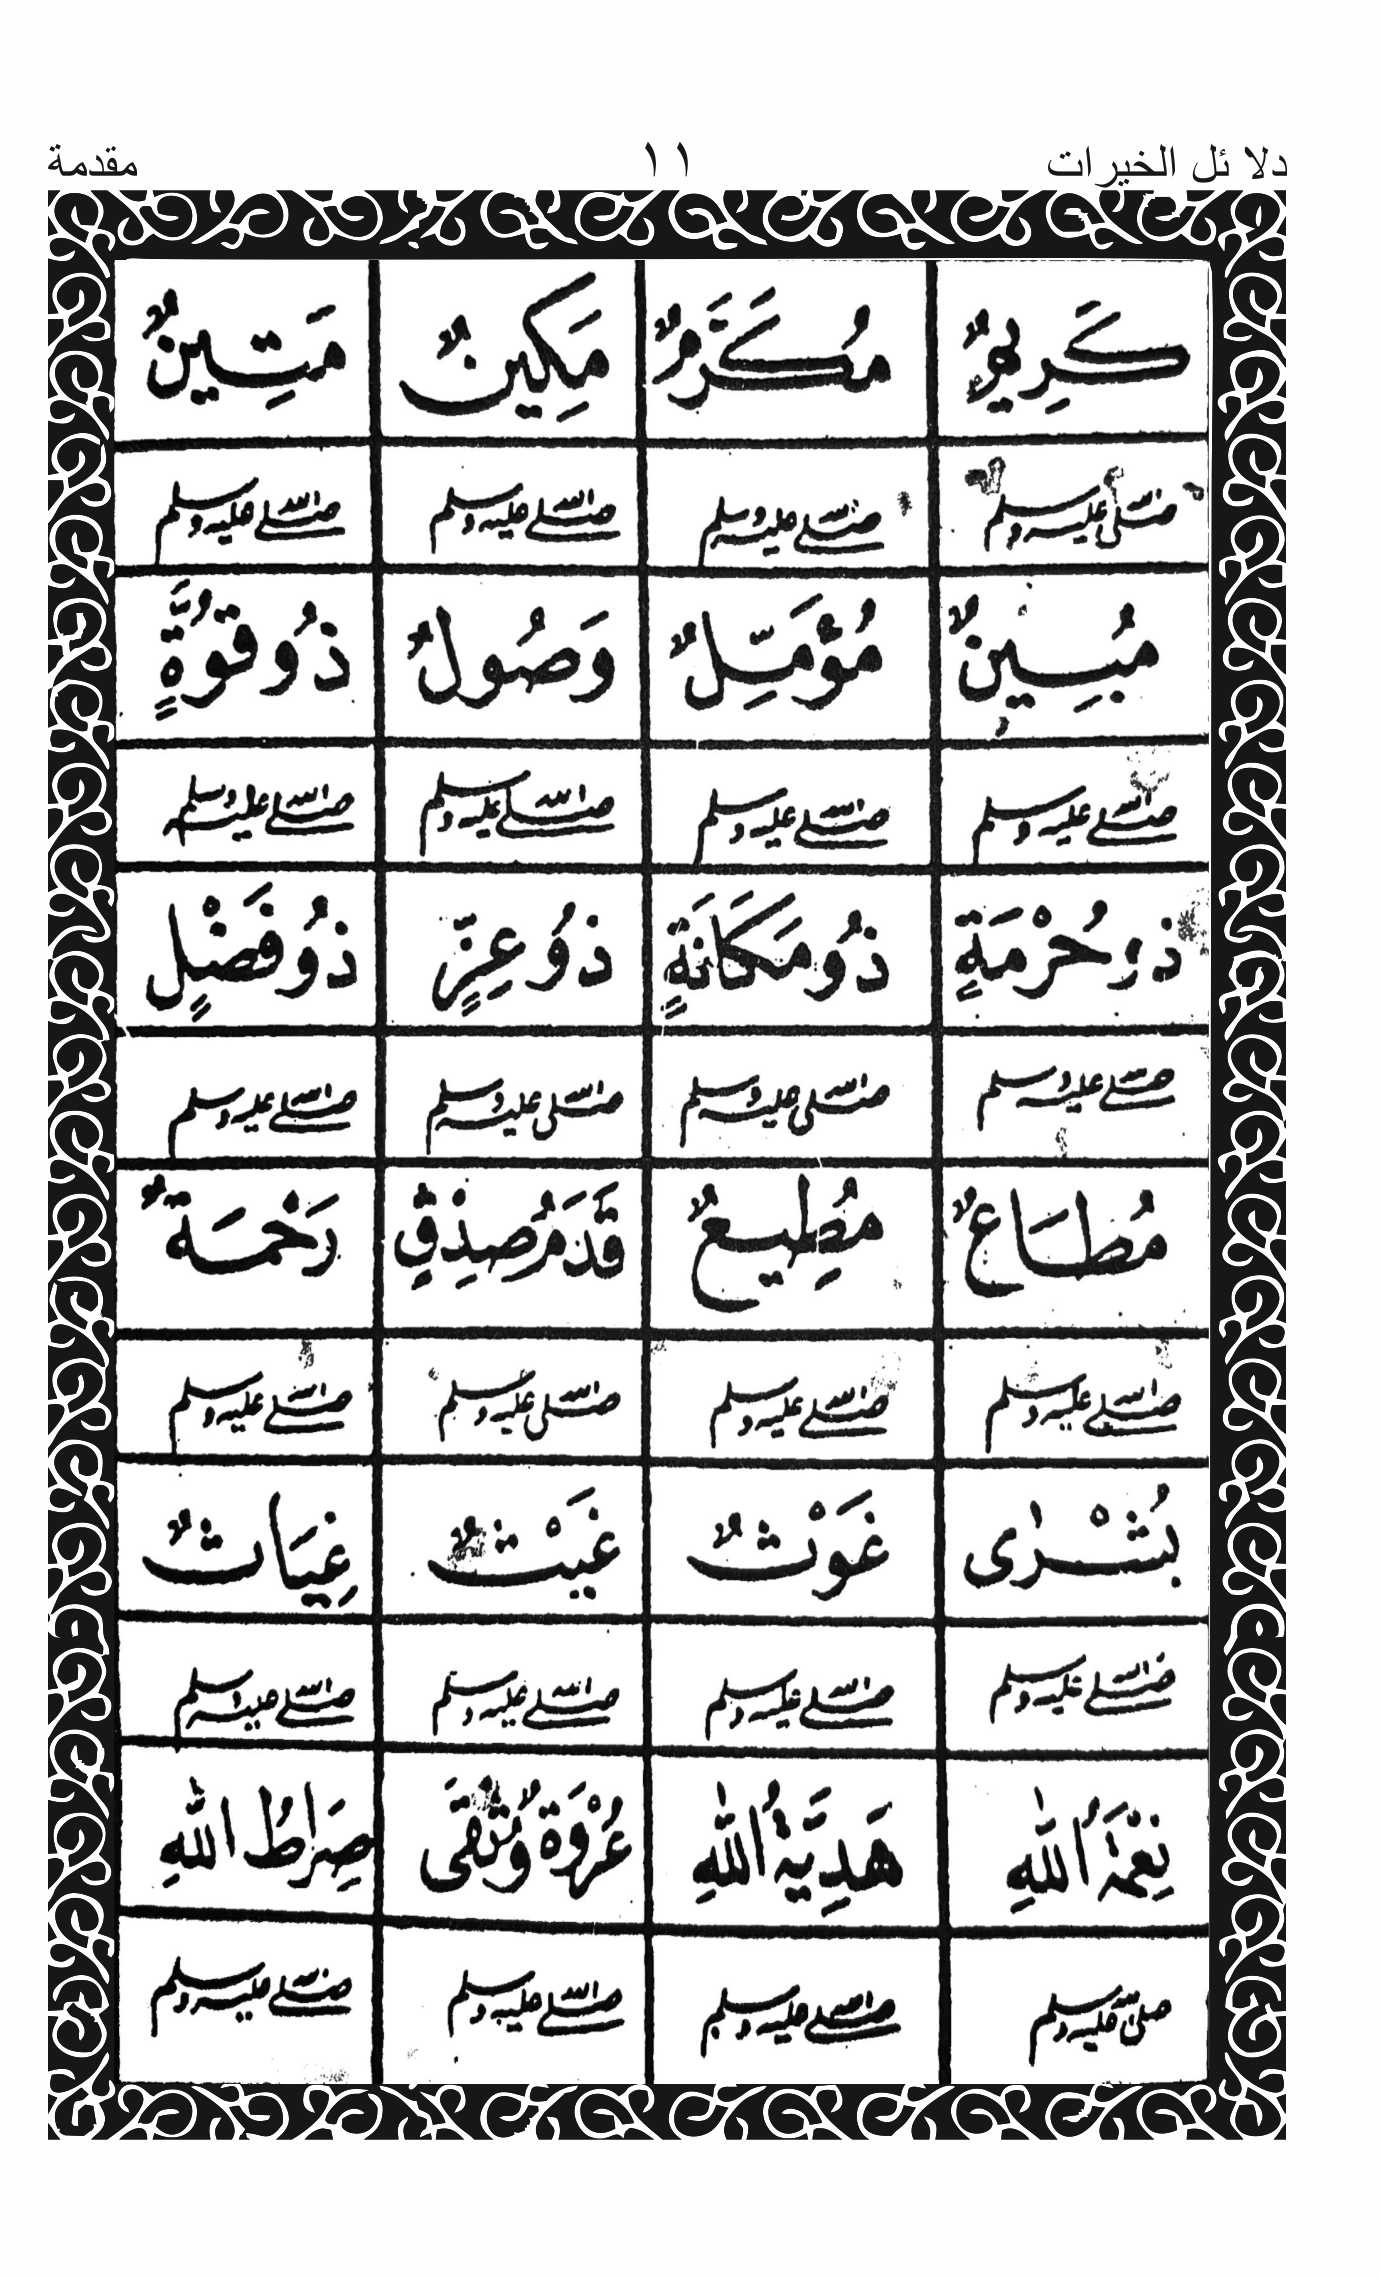 دلائل الخيرات ١١ مقدمة
كَرِيمٌ مُكَرَّمٌ مَكِينٌ مَتِينٌ
صلى الله عليه وسلم صلى الله عليه وسلم صلى الله عليه وسلم صلى الله عليه وسلم
مُبِينٌ مُؤَمِّلٌ وَصُولٌ ذُو قُوَّةٍ
صلى الله عليه وسلم صلى الله عليه وسلم صلى الله عليه وسلم صلى الله عليه وسلم
ذُو حُرْمَةٍ ذُو مَكَانَةٍ ذُو عِزٍّ ذُو فَضْلٍ
صلى الله عليه وسلم صلى الله عليه وسلم صلى الله عليه وسلم صلى الله عليه وسلم
مُطَاعٌ مُطِيعٌ قَدَمُ صِدْقٍ رَحْمَةٌ
صلى الله عليه وسلم صلى الله عليه وسلم صلى الله عليه وسلم صلى الله عليه وسلم
بُشْرٰى غَوْثٌ غَيْثٌ غِيَاثٌ
صلى الله عليه وسلم صلى الله عليه وسلم صلى الله عليه وسلم صلى الله عليه وسلم
نِعْمَةُ اللّٰهِ هَدِيَّةُ اللّٰهِ عُرْوَةٌ وُثْقَى صِرَاطُ اللّٰهِ
صلى الله عليه وسلم صلى الله عليه وسلم صلى الله عليه وسلم صلى الله عليه وسلم